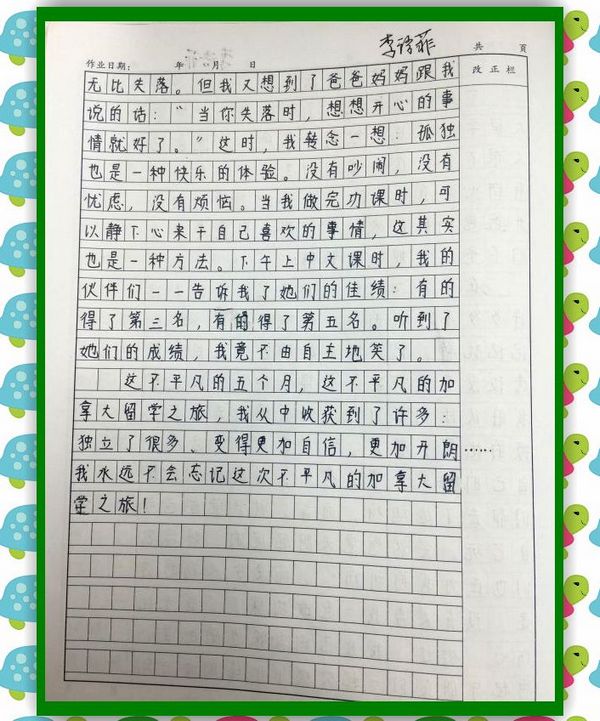 李诗菲
共 页
作业日期: 年 月 日
改正栏
无比失落。但我又想到了爸爸妈妈跟我
说的话：“当你失落时，想想开心的事
情就好了。”这时，我转念一想：孤独
也是一种快乐的体验。没有吵闹，没有
忧虑，没有烦恼。当我做完功课时，可
以静下心来干自己喜欢的事情，这其实
也是一种方法。下午上中文课时，我的
伙伴们一一告诉我了她们的佳绩：有的
得了第三名，有的得了第五名。听到了
她们的成绩，我竟不由自主地笑了。
这不平凡的五个月，这不平凡的加
拿大留学之旅，我从中收获到了许多：
独立了很多、变得更加自信，更加开朗……
我永远不会忘记这次不平凡的加拿大留
学之旅！